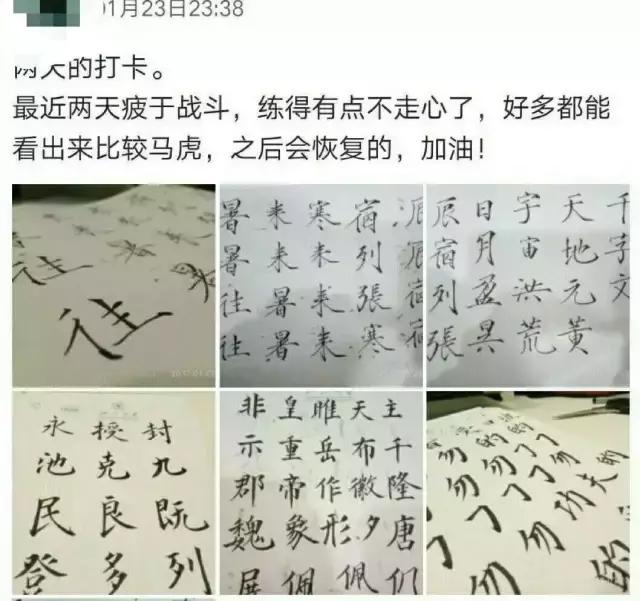 1月23日23:38
两天的打卡。
最近两天疲于战斗，练得有点不走心了，好多都能
看出来比较马虎，之后会恢复的，加油！
往
宿列張寒
寒来来来
来来暑暑
暑暑往往
千字文
天地元黄
宇宙洪荒
日月盈昃
辰宿列張
封九既列
授克良多
永池民登
主千隆唐们
天布徽夕佩
睢岳作形
皇重帝象佩
非示郡魏展